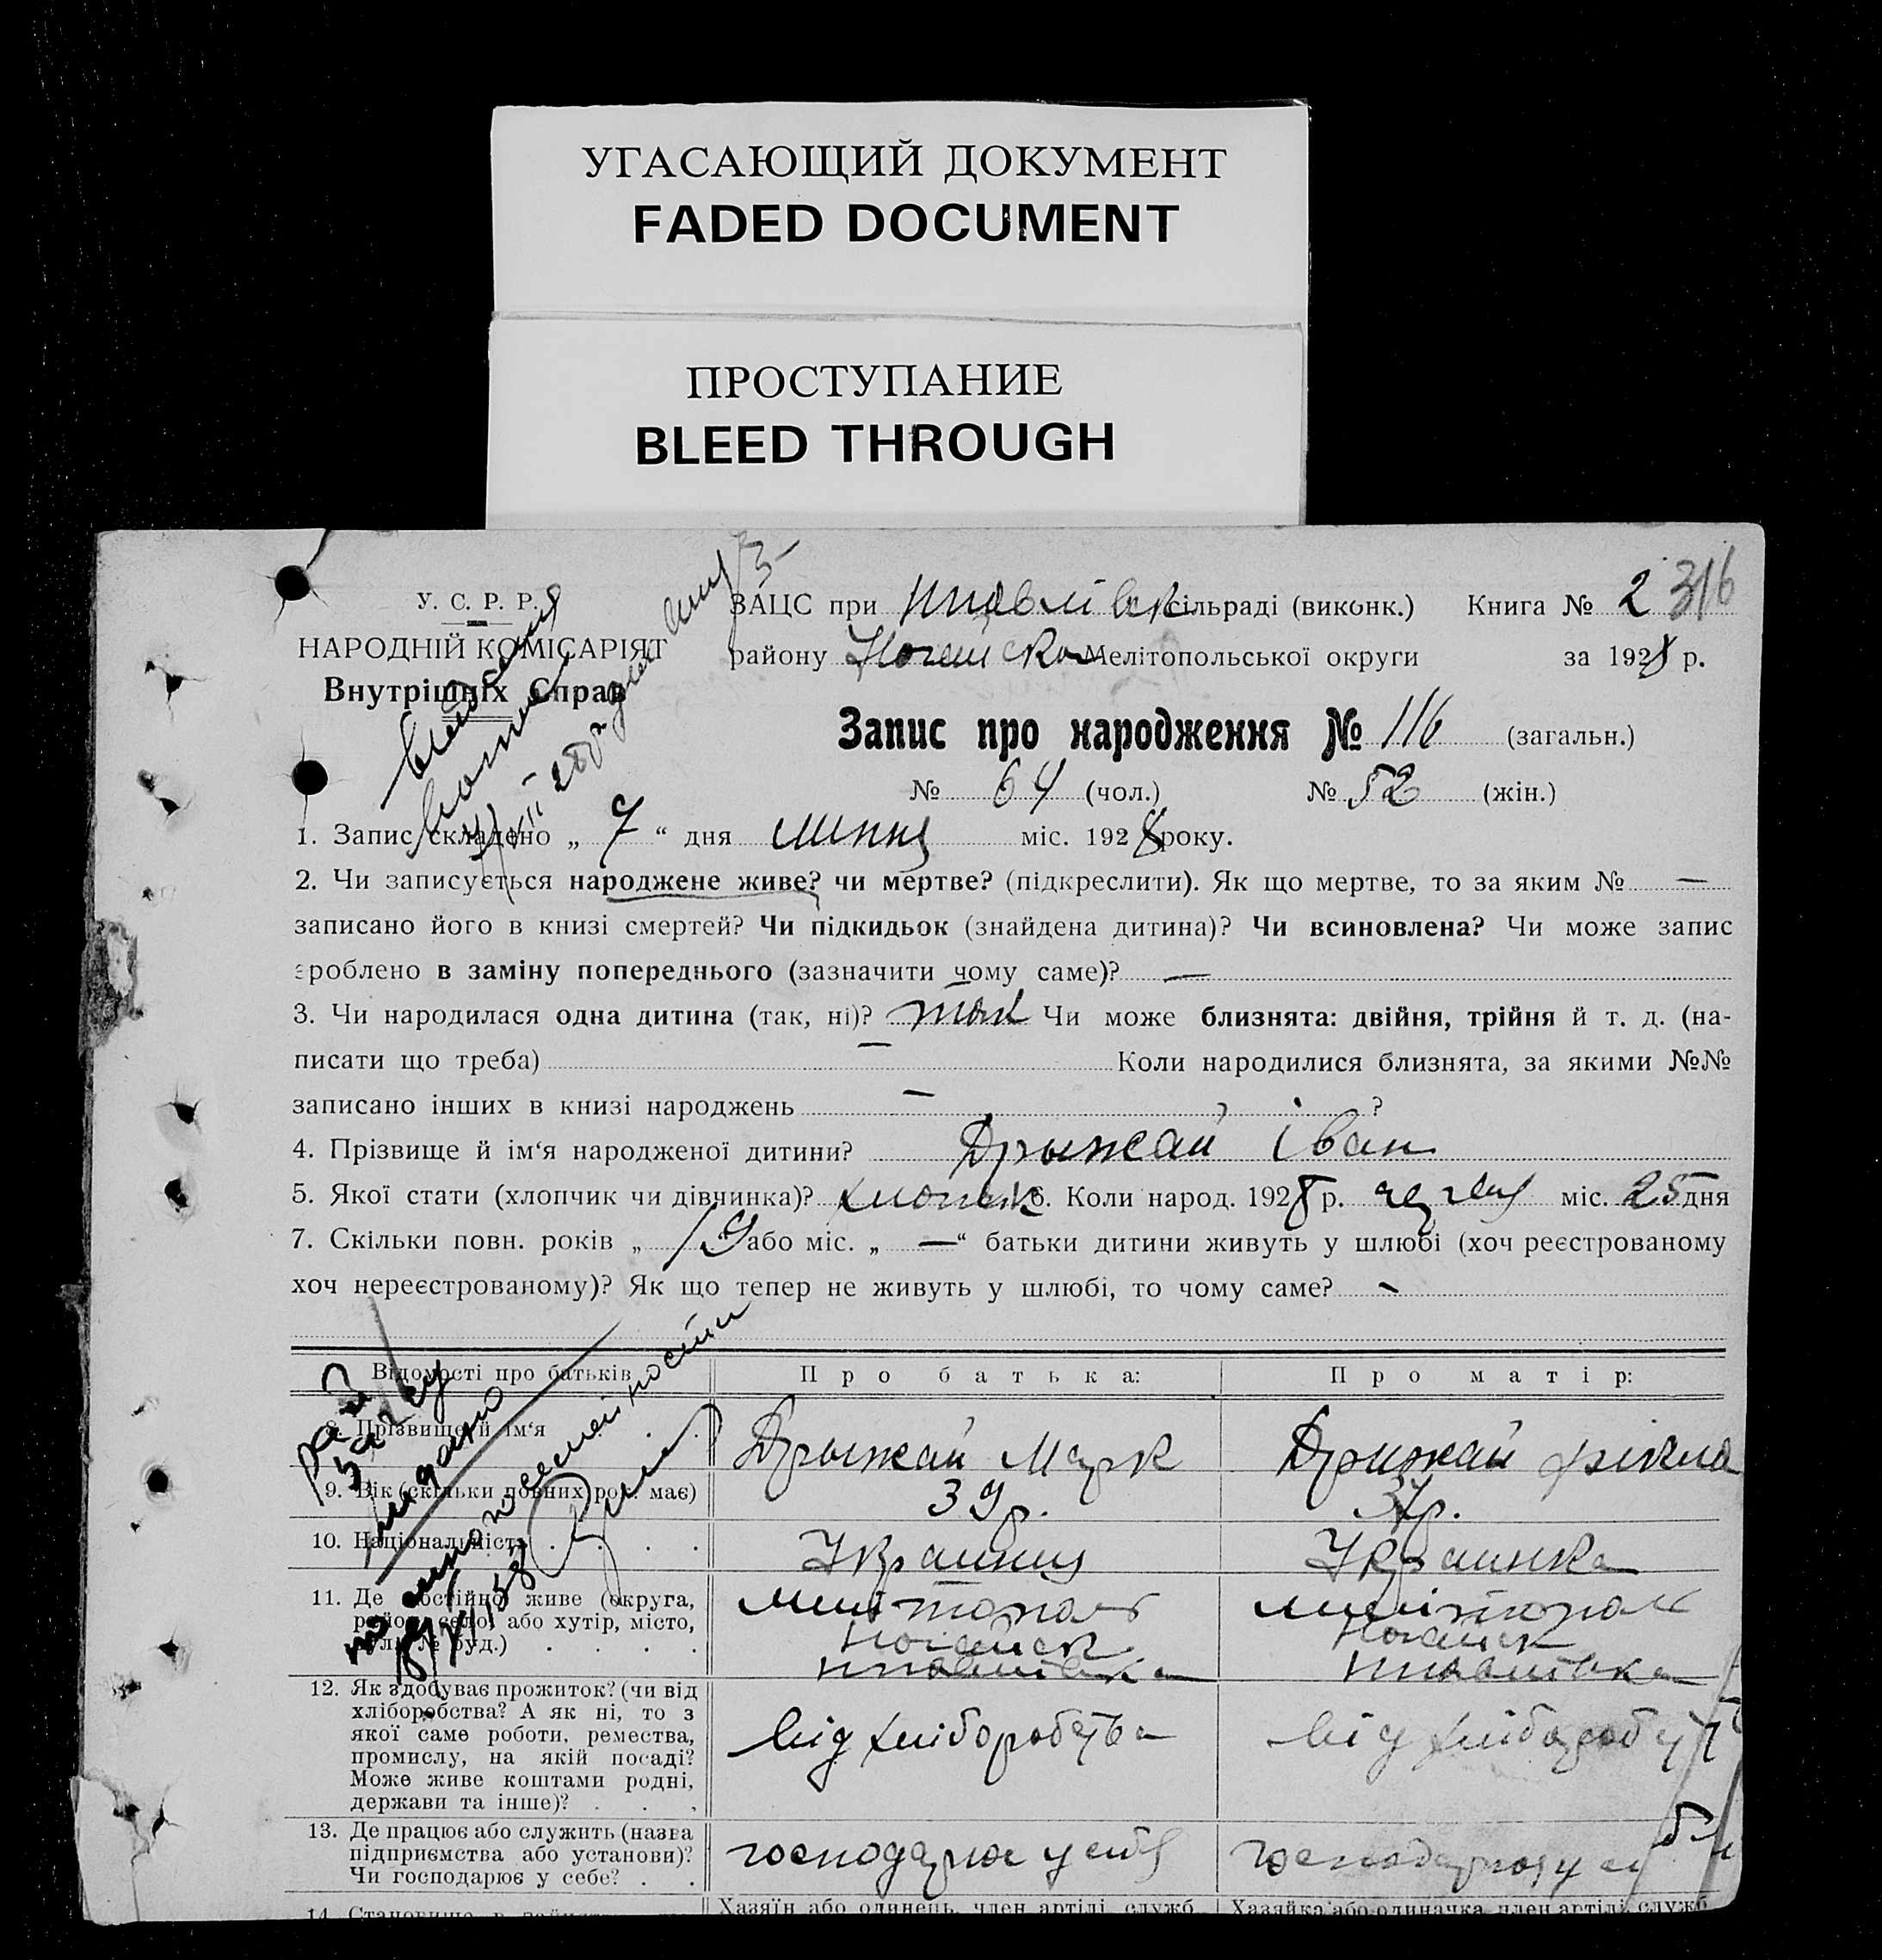 УГАСАЮЩИЙ ДОКУМЕНТ
FADED DOCUMENT
ПРОСТУПАНИЕ
BLEED THROUGH
У. С. Р. Р.
НАРОДНІЙ КОМІСАРІЯТ
Внутрішніх Справ
ЗАЦС при сільраді (виконк.) Книга № 2 316
району Мелітопольської округи за 1928 р.
Запис про народження № 116 (загальн.)
№ 64 (чол.) № 52 (жін.)
1. Запис складено „ 7 “ дня липня міс. 1928 року.
2. Чи записується народжене живе? чи мертве? (підкреслити). Як що мертве, то за яким № —
записано його в книзі смертей? Чи підкидьок (знайдена дитина)? Чи всиновлена? Чи може запис
зроблено в заміну попереднього (зазначити чому саме)? —
3. Чи народилася одна дитина (так, ні)? так Чи може близнята: двійня, трійня й т. д. (на-
писати що треба) — Коли народилися близнята, за якими №№
записано інших в книзі народжень — ?
4. Прізвище й ім‘я народженої дитини? Дрыжай Іван
5. Якої стати (хлопчик чи дівчинка)? хлопчик 6. Коли народ. 1928 р. червня міс. 25 дня
7. Скільки повн. років „ 19 або міс. „ —“ батьки дитини живуть у шлюбі (хоч реєстрованому
хоч нереєстрованому)? Як що тепер не живуть у шлюбі, то чому саме? -
Відомості про батьків Про батька: Про матір:
8. Прізвище й ім‘я Дрыжай Марк Дрижай
9. Вік (скільки повних рок. має) 39 р. 37 р.
10. Національність Украинец Украинка
11. Де постійно живе (округа,
район, село, або хутір, місто,
вул. № буд.)
Мелітополь Мелітополь
Ногайск Ногайск
12. Як здобуває прожиток? (чи від
хліборобства? А як ні, то з
якої саме роботи, ремества,
промислу, на якій посаді?
Може живе коштами родні,
держави та інше)?
від хліборобства від хліборобст
13. Де працює або служить (назва
підприємства або установи)?
Чи господарює у себе?
господарює у себя
14. Становище в
Хазяїн або одинець, член артілі, служб. Хазяйка або одиначка, член артілі, служб.